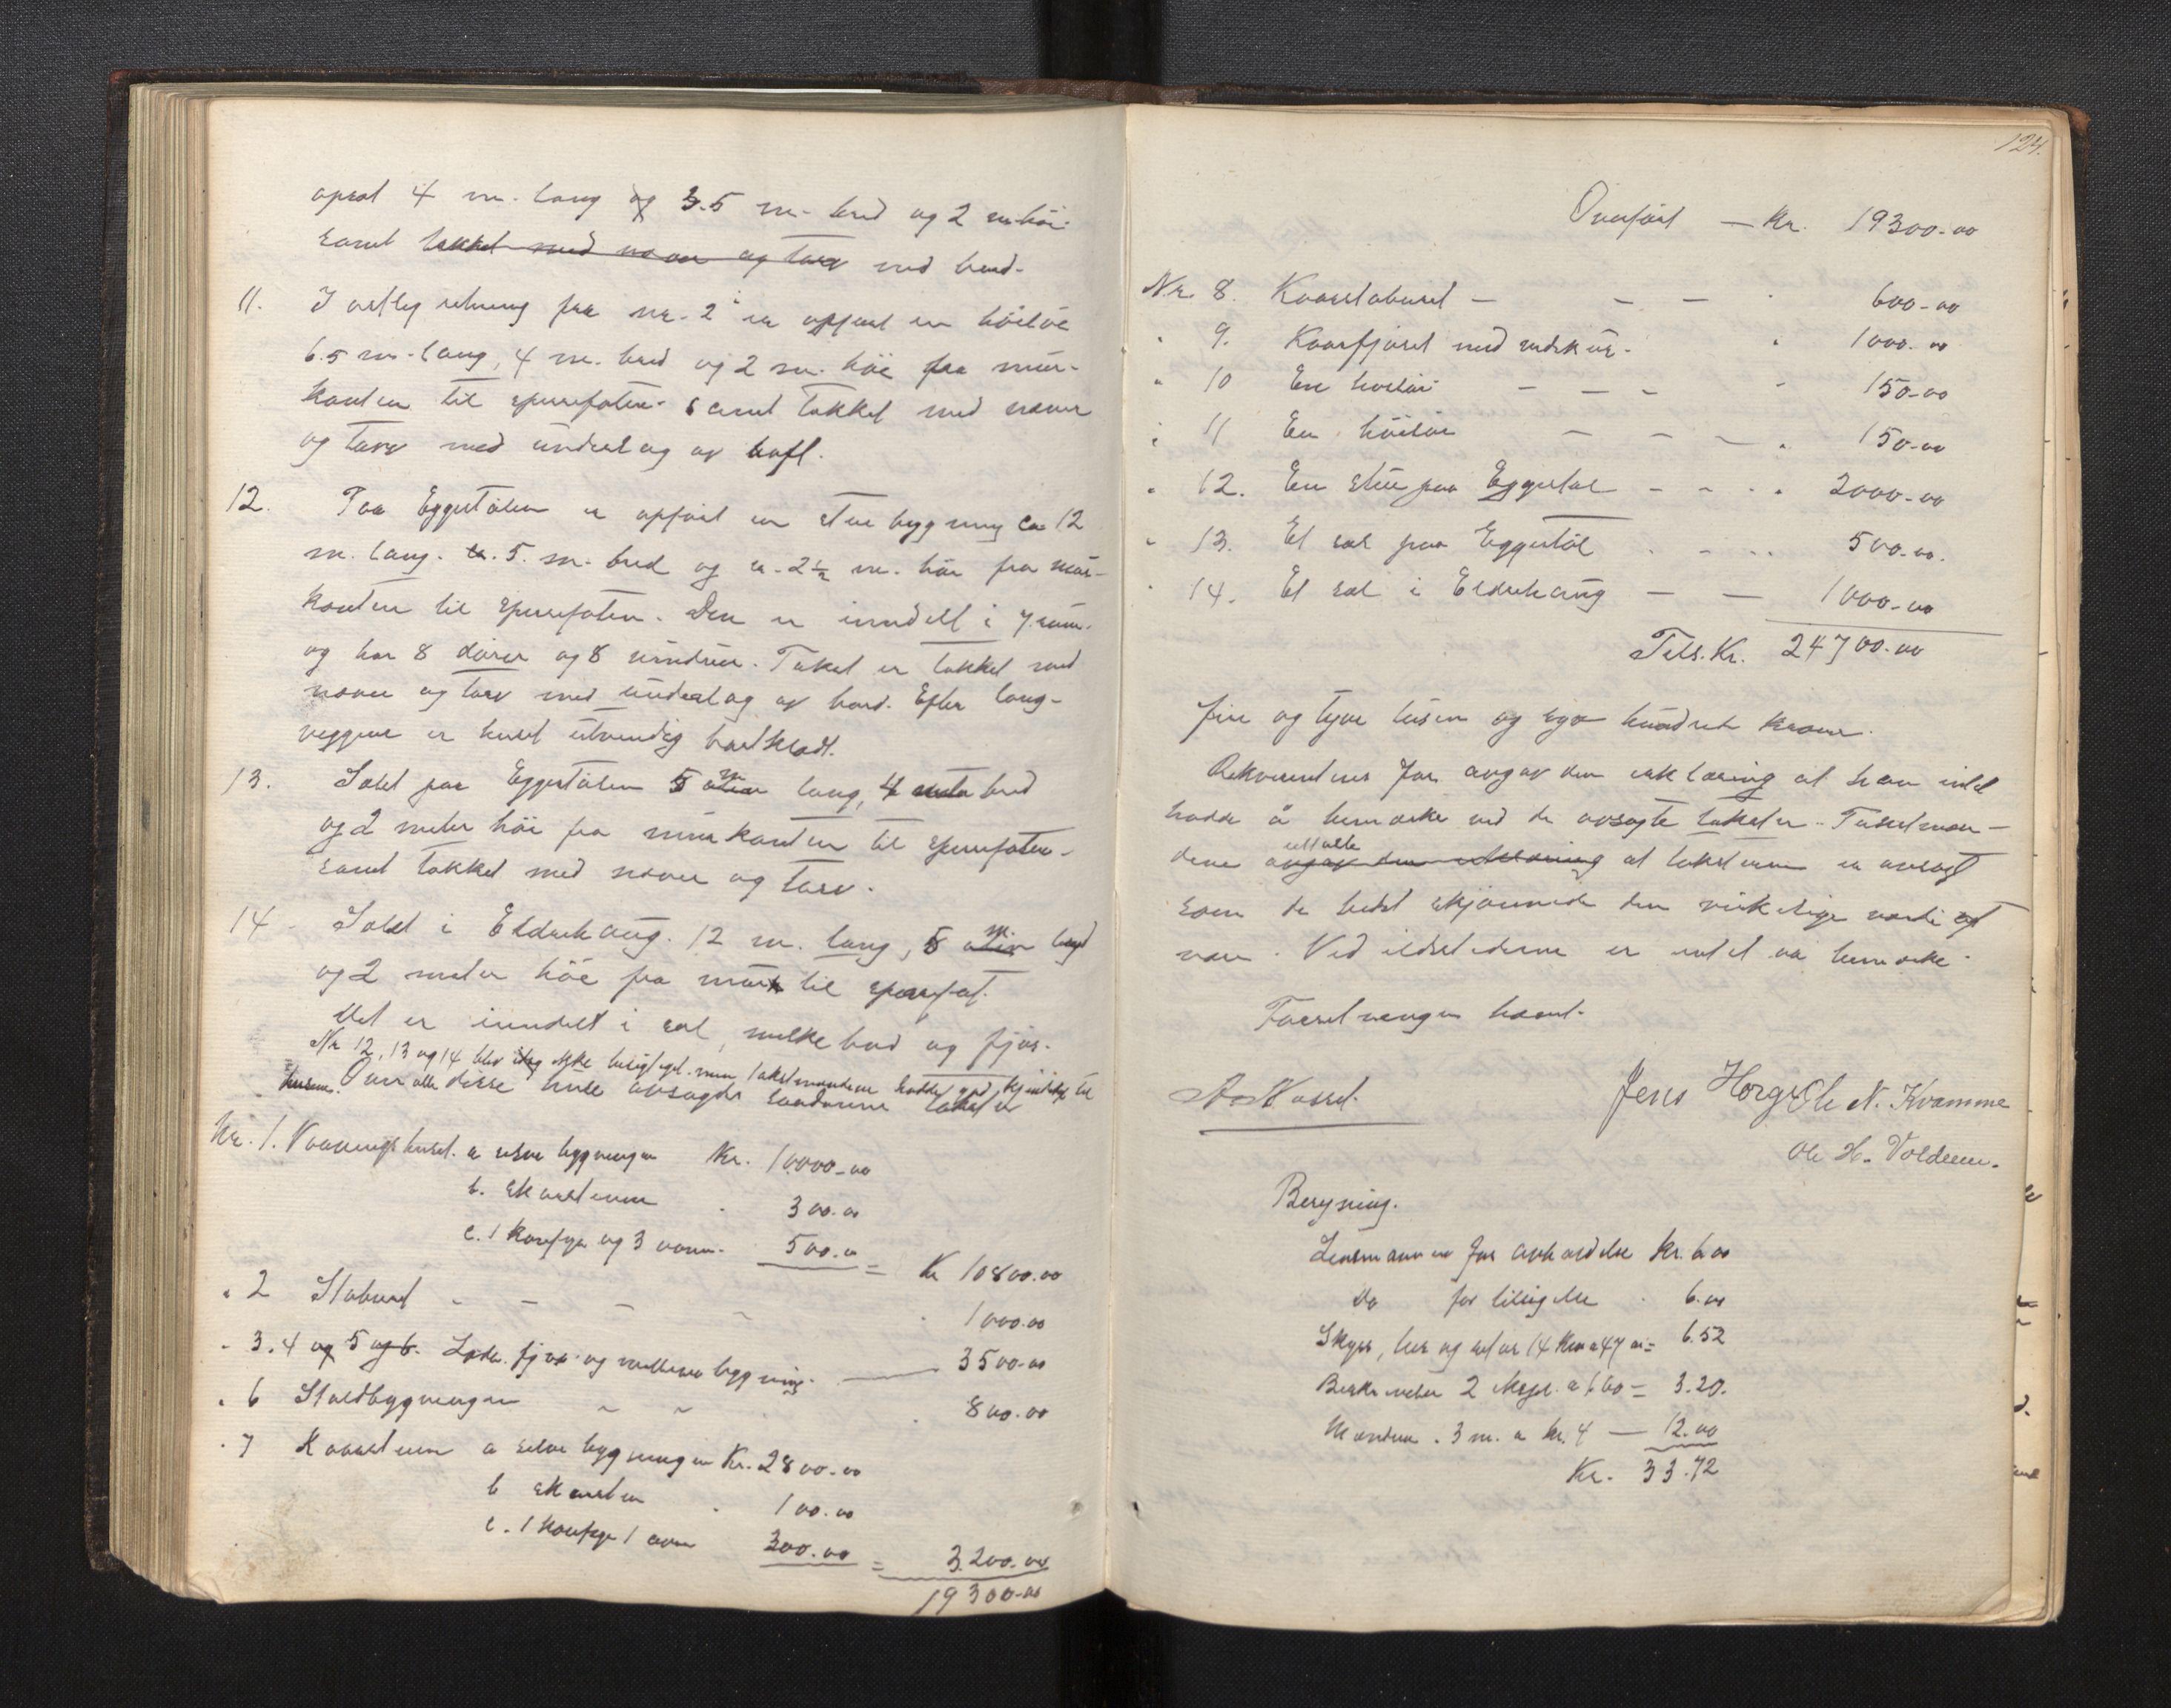 4 m. lang og 3.5 m. bred og 2 m. höi
samt takket med næver og torv med bord.
11. I östlig retning fra nr. 2 er opfört en höilöe
6.5 m. lang, 4 m. bred og 2 m. höi fra mur-
kanten til sperrefoten samt takket med næver
og torv med underlag av
12. Paa Eggestölen er opfört en stuebygning ca 12
m. lang. 5. m. bred og 2½ m. höi fra mur-
kanten til sperrefoten. Den er inndelt i 7 rum
og har 8 dörer og 8 vinduer. Taket er takket med
næver og torv med underlag av bord. Efter lang-
veggene er huset utvendig bordklædt.
13. Sælet paa Eggestölen 5 m lang, 4 meter bred
og 2 meter höi fra murkanten til sperrefoten
samt takket med næver og torv.
14. Sælet i Eldrehaug. 12 m. lang, 5 m.
og 2 meter höi fra mur til sperrefot.
Det er inndelt i sæl, melkebud og fjös.
Nr 12, 13 og 14 blev idag ikke besigtiget men takstmændene hadde god kjendskap til
husene. Over alle disse huse avsagdes saadanne takster
Nr. 1. Vaaningshuset. a selve bygningen Kr. 10000-00
b. skorstenen 300.00
c. 1 komfyr og 3 ovner. 500.00 = Kr 10800.00
" 2 Staburet - - - 1000.00
" 3. 4 og 5 og 6. Löda. fjös og mellembygning. 3500-00
" 6 Staldbygningen 800.00
" 7 Kaarstuen a selve bygningen Kr. 2800.00
b skorsten 100.00
c. 1 komfyr 1 ovn 300.00 = 3200.00
19300-00
124.
Overfört - Kr. 19300-00
Nr. 8. Kaarstaburet - - - 600-00
" 9. Kaarfjöset med vedskur. 1000-00
" 10 En - - - 150-00
" 11 En höilöe - - - 150-00
" 12. En stue paa Eggestöl - - 2000-00
" 13. Et sæl paa Eggestöl 500-00.
" 14. Et sæl i Eldrehaug - - 1000-00
Tils. Kr. 24700-00
fire og tyve tusen og syv hundrede kroner.
Rekvirenten avgav den erklæring at han intet
hadde å bemærke ved de avsagte takster. Takstmæn-
dene uttalte avgav den erklæring at takstene er avsagt
som de bedst skjönnede den virkelige værdi at
være. Ved ildstederne er intet aa bemærke.
Forretningen hævet.
Jens Horge Ole N. Kvamme
Ole H. Voldum.
Beregning.
Lensmannen for avholdelse Kr. 6.00
Do for tilsigelse 6.00
Skyss, hen og retur 14 km a 47 öre = 6.52
Beskrivelse 2 ekspl. a 1.60 = 3.20.
Mændene. 3 m. a kr. 4 - 12.00
Kr. 33.72